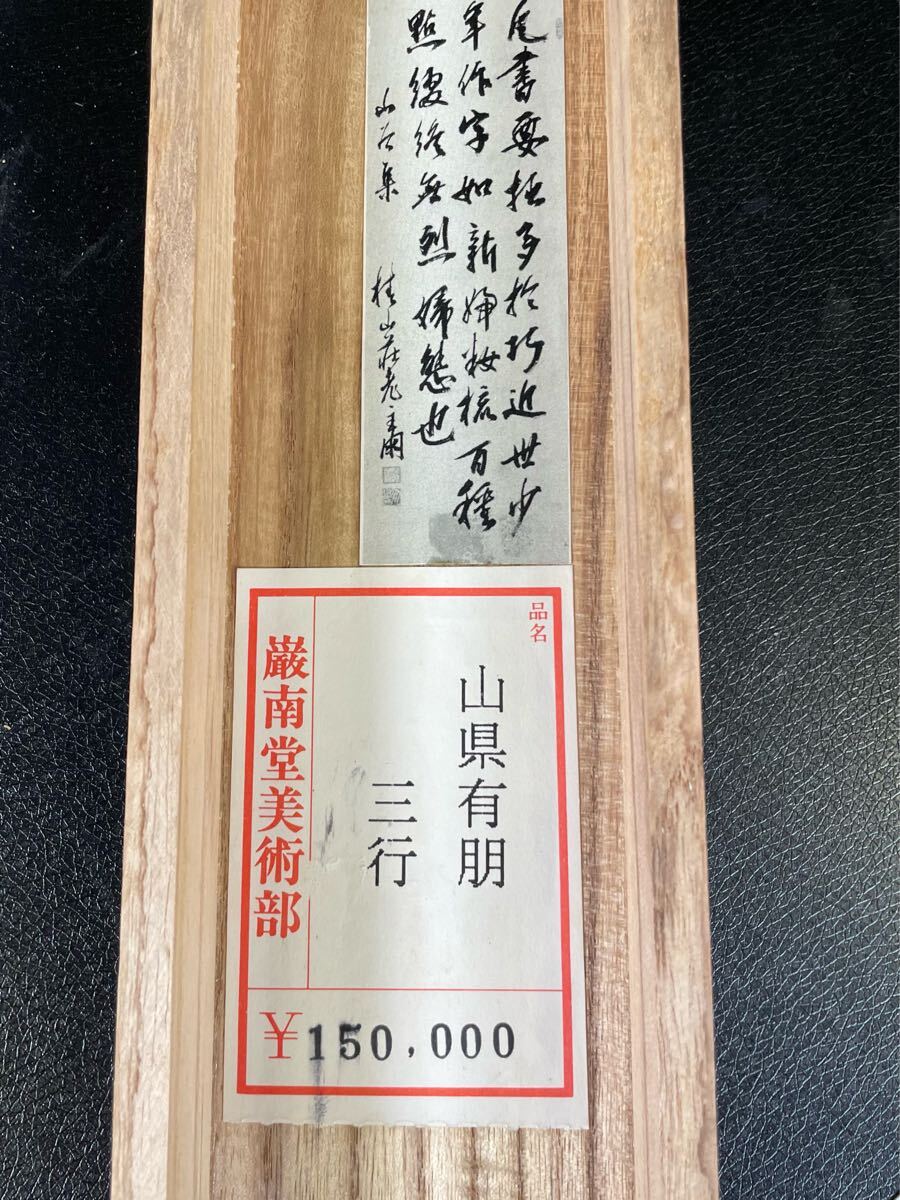 凡書要拙多於巧近世少
年作字如新婦妝梳百種
點綴終無烈婦態也
山谷集 椿山莊老主
品名
山県有朋
三行
巌南堂美術部
¥150,000